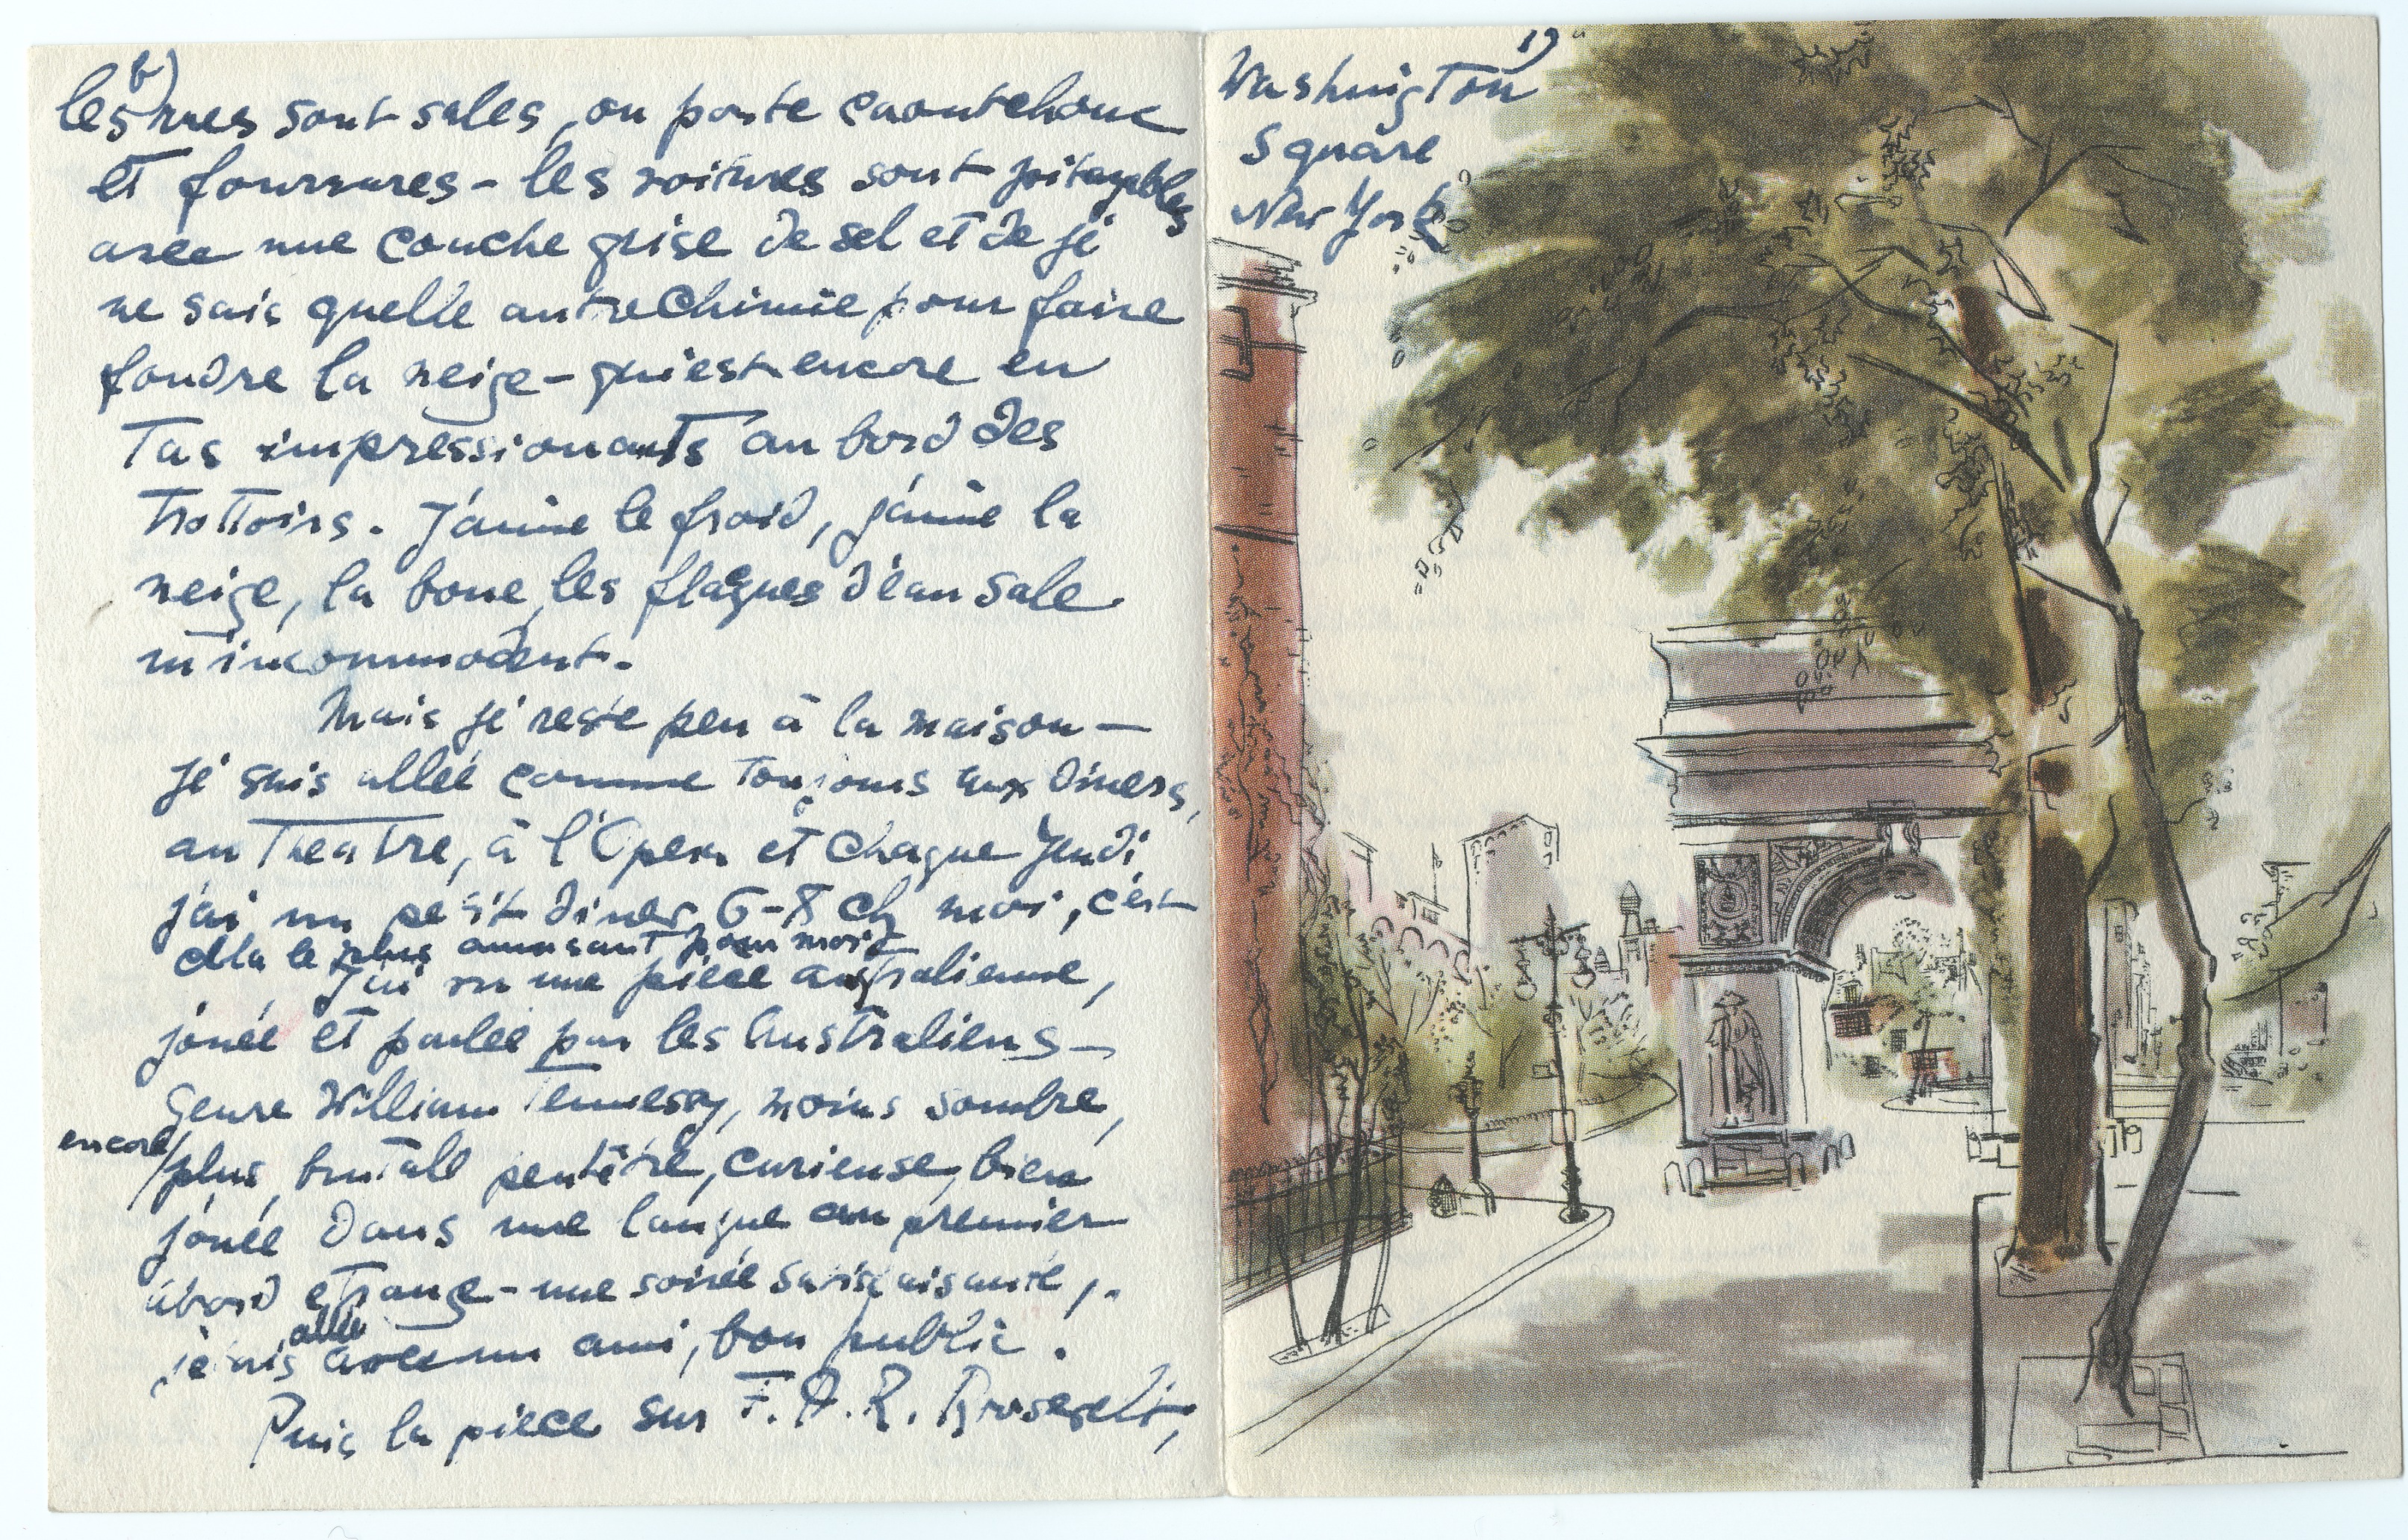 b)
les rues sont sales, on porte caoutchouc
et fourrures - les voitures sont pitoyables
avec une couche grise de sel et de je
ne sais quelle autre chimie pour faire
fondre la neige - qui est encore en
Tas impressionants au bord des
Trottoirs. J'aime le froid, j'aime la
neige, la boue, les flaques d'eau sale
m'incommodent.
Mais je reste peu à la maison —
je suis allée comme toujours aux diners,
au Theatre, à l'Opera et chaque Jeudi
j'ai un petit diner 6-8 ch moi, c'est
cela le plus amusant pour moi
J'ai vu une pièce australienne,
jouée et parlée par les Australiens —
Genre William Tennessy, moins sombre,
encore/plus brutale peutêtre, curieuse, bien
jouée dans une langue au premier
abord etrange - une soirée satisfaisante,
je suis allée avec un ami, bon public.
Puis la pièce sur F.D.R. Roosevelt,
19
Washington
Square
New York